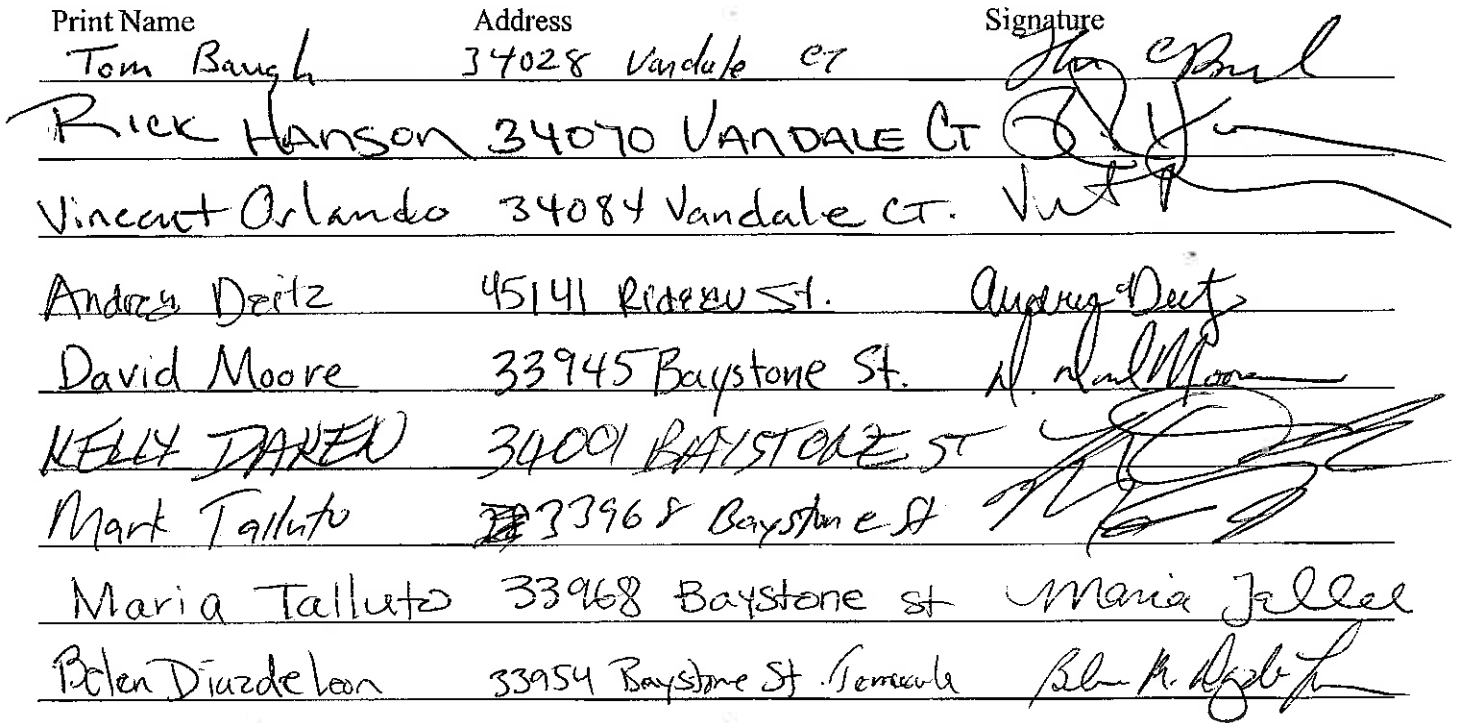 Print Name Address Signature
Tom Baugh 34028 Vandale CT
Rick HANSON 34070 VANDALE CT
Vincent Orlando 34084 Vandale CT.
Deitz 45141 Rideau St. Audrey Deitz
David Moore 33945 Baystone St. Moore
KELLY DAKEN 34001 BAYSTONE ST
Mark Talluto 33968 Baystone St
Maria Talluto 33968 Baystone st Maria
Belen Diazdeleon 33954 Baystone St. Temecula